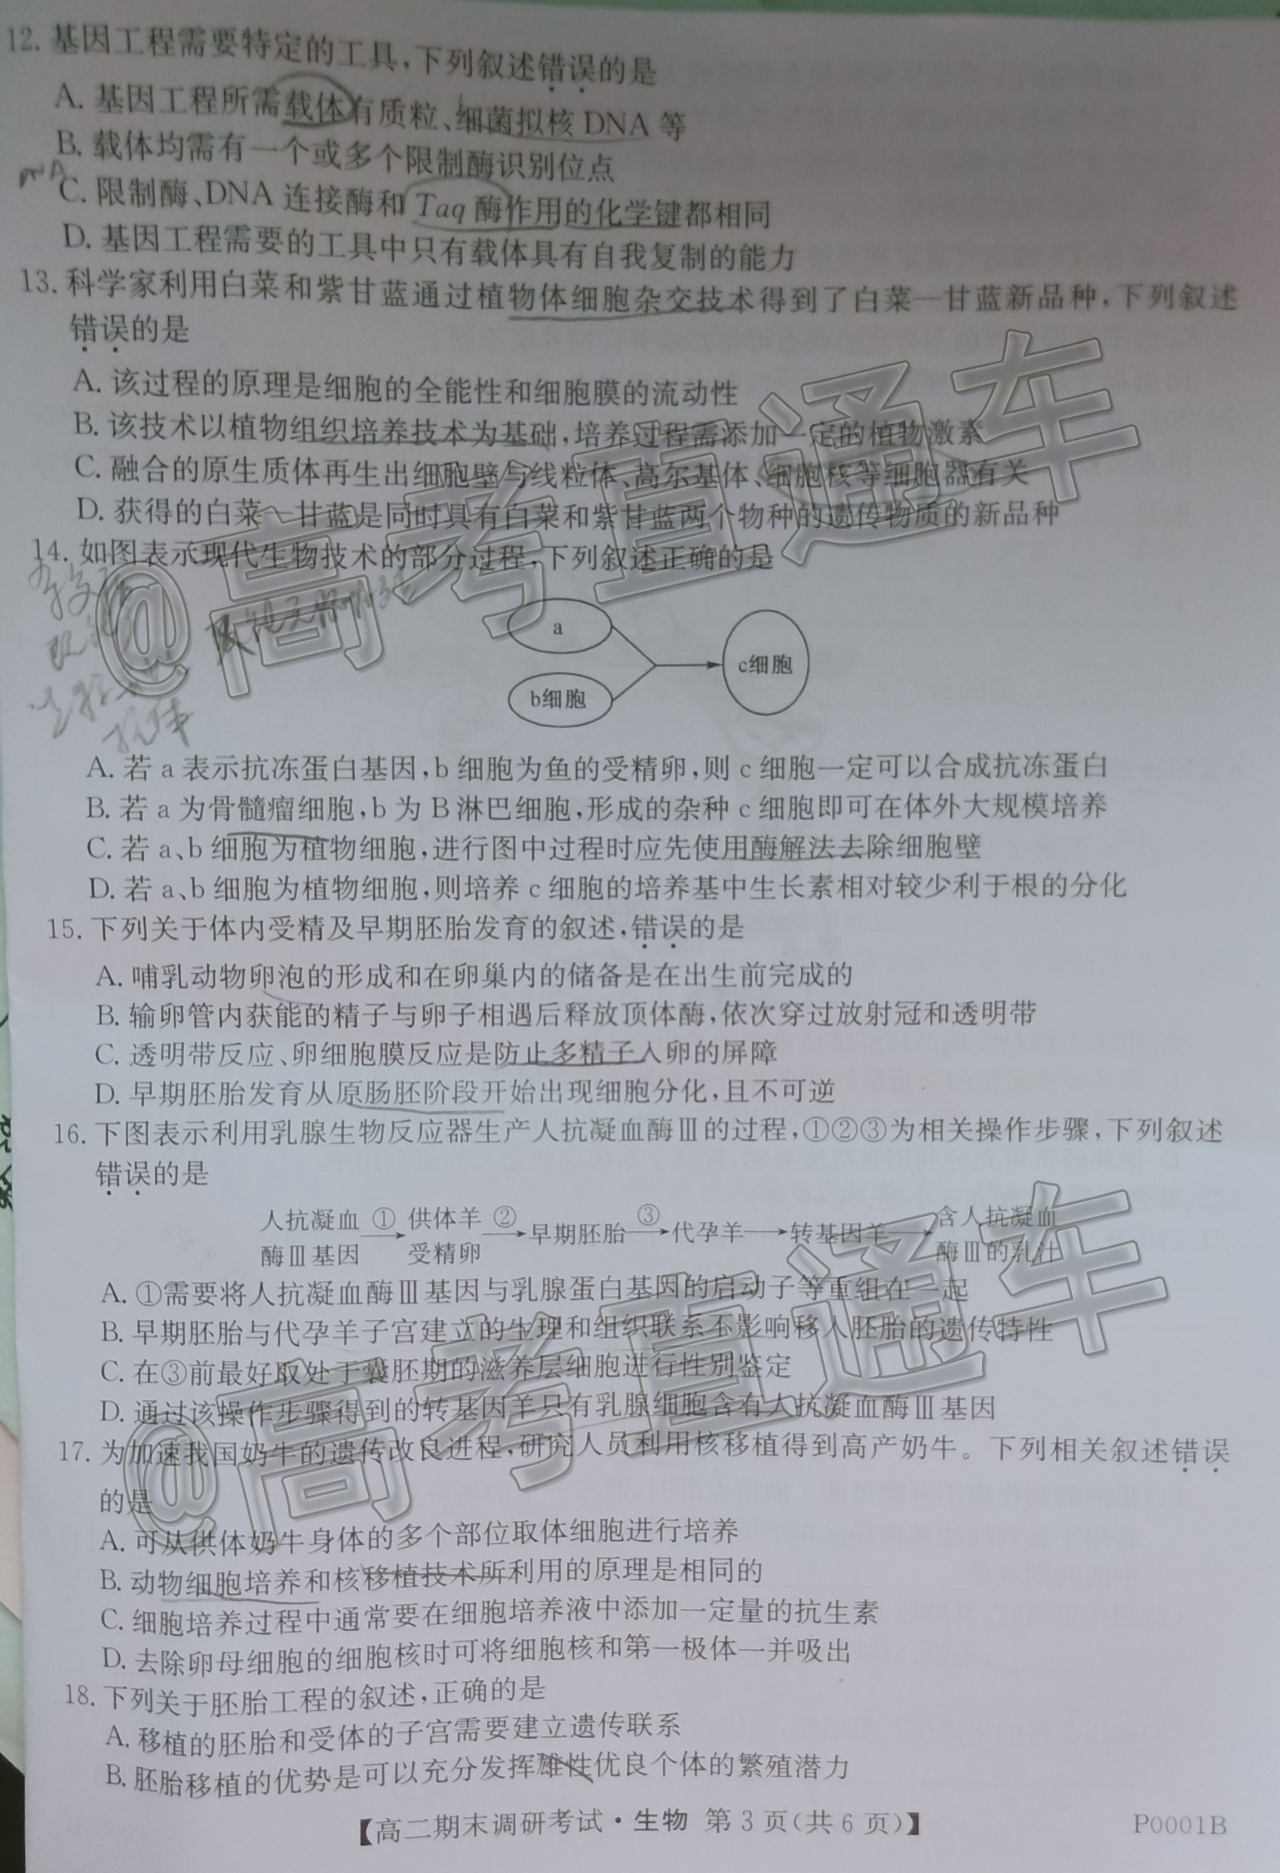 12. 基因工程需要特定的工具,下列叙述错误的是
A. 基因工程所需载体有质粒、细菌拟核 DNA 等
B. 载体均需有一个或多个限制酶识别位点
DNA
C. 限制酶、DNA 连接酶和 Taq 酶作用的化学键都相同
D. 基因工程需要的工具中只有载体具有自我复制的能力
13. 科学家利用白菜和紫甘蓝通过植物体细胞杂交技术得到了白菜—甘蓝新品种,下列叙述
错误的是
A. 该过程的原理是细胞的全能性和细胞膜的流动性
B. 该技术以植物组织培养技术为基础,培养过程需添加一定的植物激素
C. 融合的原生质体再生出细胞壁与线粒体、高尔基体、细胞核等细胞器有关
D. 获得的白菜—甘蓝是同时具有白菜和紫甘蓝两个物种的遗传物质的新品种
14. 如图表示现代生物技术的部分过程,下列叙述正确的是
a
b细胞
c细胞
抗体
A. 若 a 表示抗冻蛋白基因,b 细胞为鱼的受精卵,则 c 细胞一定可以合成抗冻蛋白
B. 若 a 为骨髓瘤细胞,b 为 B 淋巴细胞,形成的杂种 c 细胞即可在体外大规模培养
C. 若 a、b 细胞为植物细胞,进行图中过程时应先使用酶解法去除细胞壁
D. 若 a、b 细胞为植物细胞,则培养 c 细胞的培养基中生长素相对较少利于根的分化
15. 下列关于体内受精及早期胚胎发育的叙述,错误的是
A. 哺乳动物卵泡的形成和在卵巢内的储备是在出生前完成的
B. 输卵管内获能的精子与卵子相遇后释放顶体酶,依次穿过放射冠和透明带
C. 透明带反应、卵细胞膜反应是防止多精子入卵的屏障
D. 早期胚胎发育从原肠胚阶段开始出现细胞分化,且不可逆
16. 下图表示利用乳腺生物反应器生产人抗凝血酶Ⅲ的过程,①②③为相关操作步骤,下列叙述
错误的是
人抗凝血酶Ⅲ基因 ① 供体羊受精卵 ② 早期胚胎 ③ 代孕羊 转基因羊 含人抗凝血酶Ⅲ的乳汁
A. ①需要将人抗凝血酶Ⅲ基因与乳腺蛋白基因的启动子等重组在一起
B. 早期胚胎与代孕羊子宫建立的生理和组织联系不影响移入胚胎的遗传特性
C. 在③前最好取处于囊胚期的滋养层细胞进行性别鉴定
D. 通过该操作步骤得到的转基因羊只有乳腺细胞含有人抗凝血酶Ⅲ基因
17. 为加速我国奶牛的遗传改良进程,研究人员利用核移植得到高产奶牛。下列相关叙述错误
的是
A. 可从供体奶牛身体的多个部位取体细胞进行培养
B. 动物细胞培养和核移植技术所利用的原理是相同的
C. 细胞培养过程中通常要在细胞培养液中添加一定量的抗生素
D. 去除卵母细胞的细胞核时可将细胞核和第一极体一并吸出
18. 下列关于胚胎工程的叙述,正确的是
A. 移植的胚胎和受体的子宫需要建立遗传联系
B. 胚胎移植的优势是可以充分发挥雄性优良个体的繁殖潜力
【高二期末调研考试·生物 第 3 页(共 6 页)】 P0001B
@高考直通车
@高考直通车